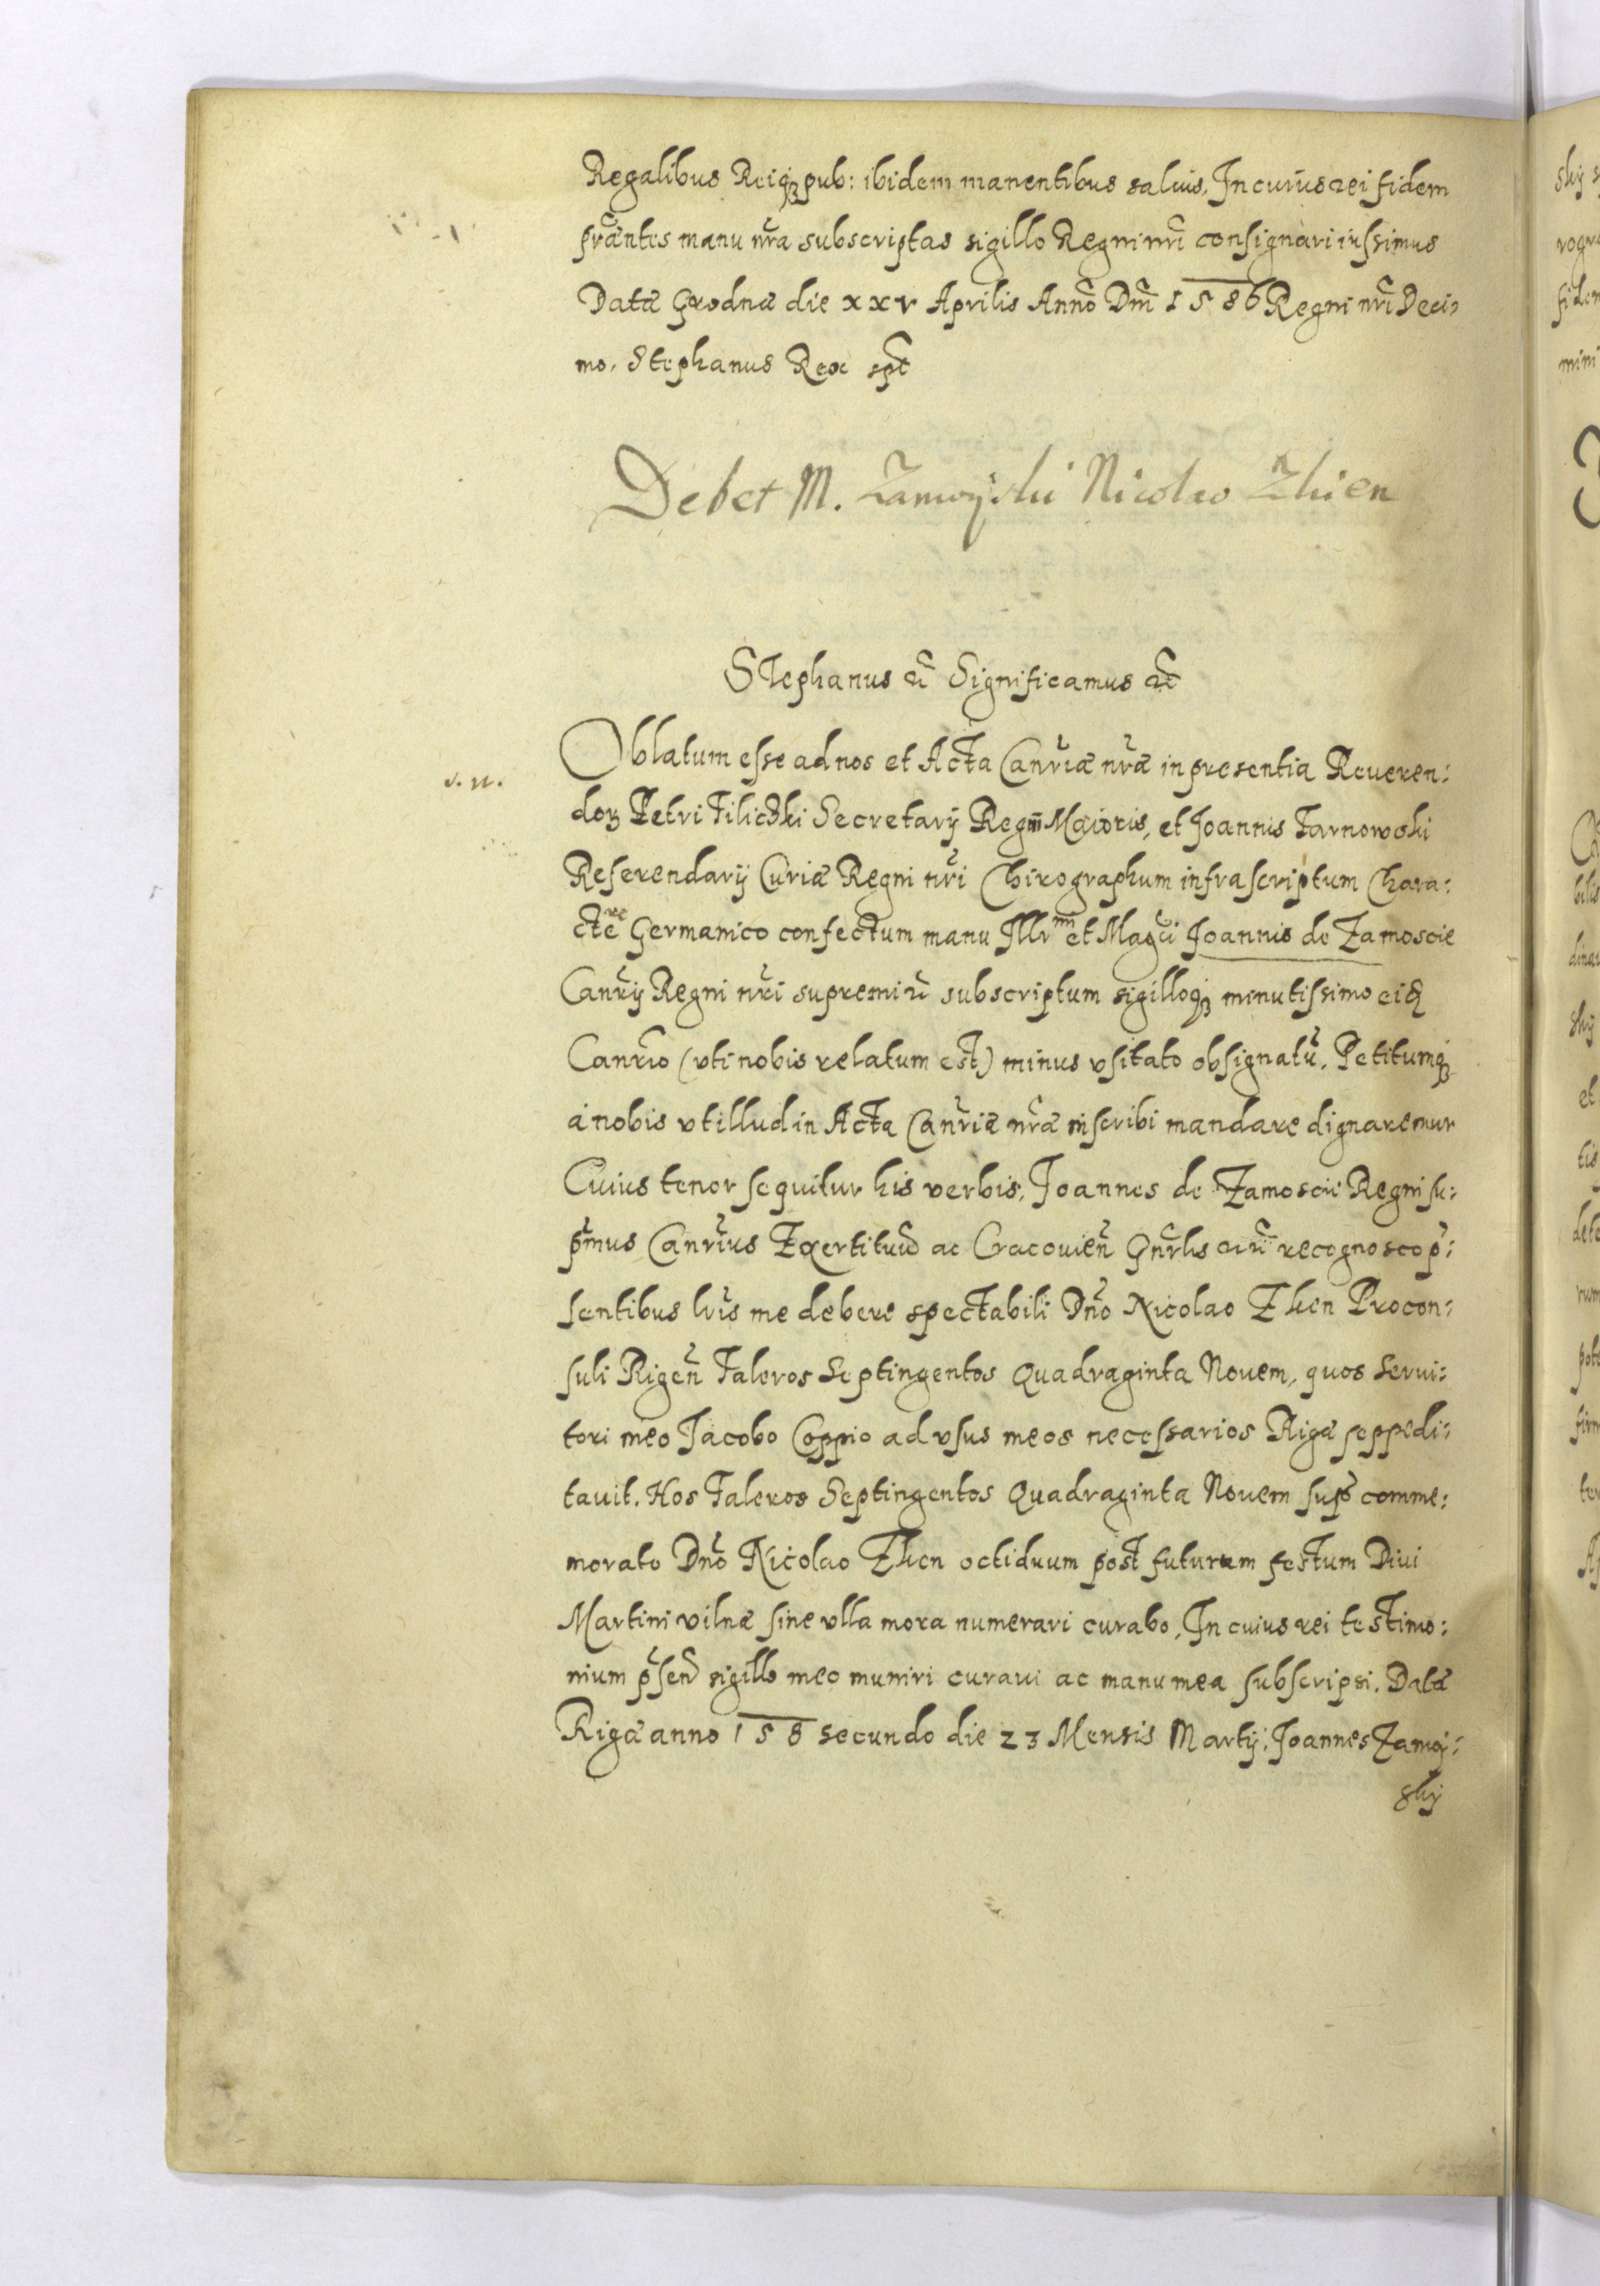 Regalibus Reiqȝ pub: ibidem manentibus saluis, In cuius rei fidem
pr̃æntes manu nr̃a subscriptas sigillo Regni nr̃i consignari iussimus
Datæ Grodnæ die xxv Aprilis Anno Dni 1586 Regni nr̃i Deci:
mo. Stephanus Rex spt
Debet M. Zamoyski Nicolao Zhien
Stephanus etc̃ Significamus etc̃
Oblatum esse ad nos et Acta Canr̃iæ nr̃æ in presentia Reueren:
s. n.
dorȝ Petri Tiliczki Secretarij Regni Maioris, et Joannis Tarnowski
Referendarij Curiæ Regni nr̃i Chirographum infrascriptum Chara:
ctere Germanico confectum manu Illrmi et Magci Joannis de Zamoscie
Canr̃ij Regni nr̃i supremi etc̃ subscriptum sigilloqȝ minutissimo eid
Canrio (vti nobis relatum est) minus vsitato obsignatũ. Petitumqȝ
à nobis vt illud in Acta Canr̃iæ nr̃æ inscribi mandare dignaremur
Cuius tenor sequitur his verbis, Joannes de Zamoscie Regni su:
pr̃mus Canr̃ius Exertituũ ac Cracouień Gnr̃lis etc̃ recognosco p̃:
sentibus lr̃is me debere spectabili Dño Nicolao Ehen Procon:
suli Rigeñ Taleros Septingentos Quadraginta Nouem, quos serui:
tori meo Jacobo Coppio ad vsus meos necessarios Rigæ seppedi:
tauit. Hos Taleros Septingentos Quadraginta Nouem sup comme:
morato Dño Nicolao Ehen octiduum post futurum festum Diui
Martini vilnæ sine vlla mora numerari curabo, In cuius rei testimo:
nium p̃sen sigillo meo muniri curaui ac manu mea subscripsi. Datæ
Rigæ anno 158 secundo die 23 Mensis Martij. Joannes Zamoj:
skij